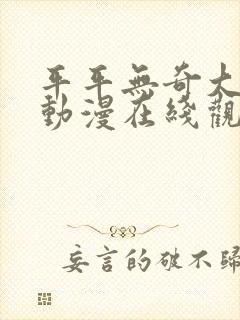 平平無奇大
動漫在綫觀
妄言的破不歸